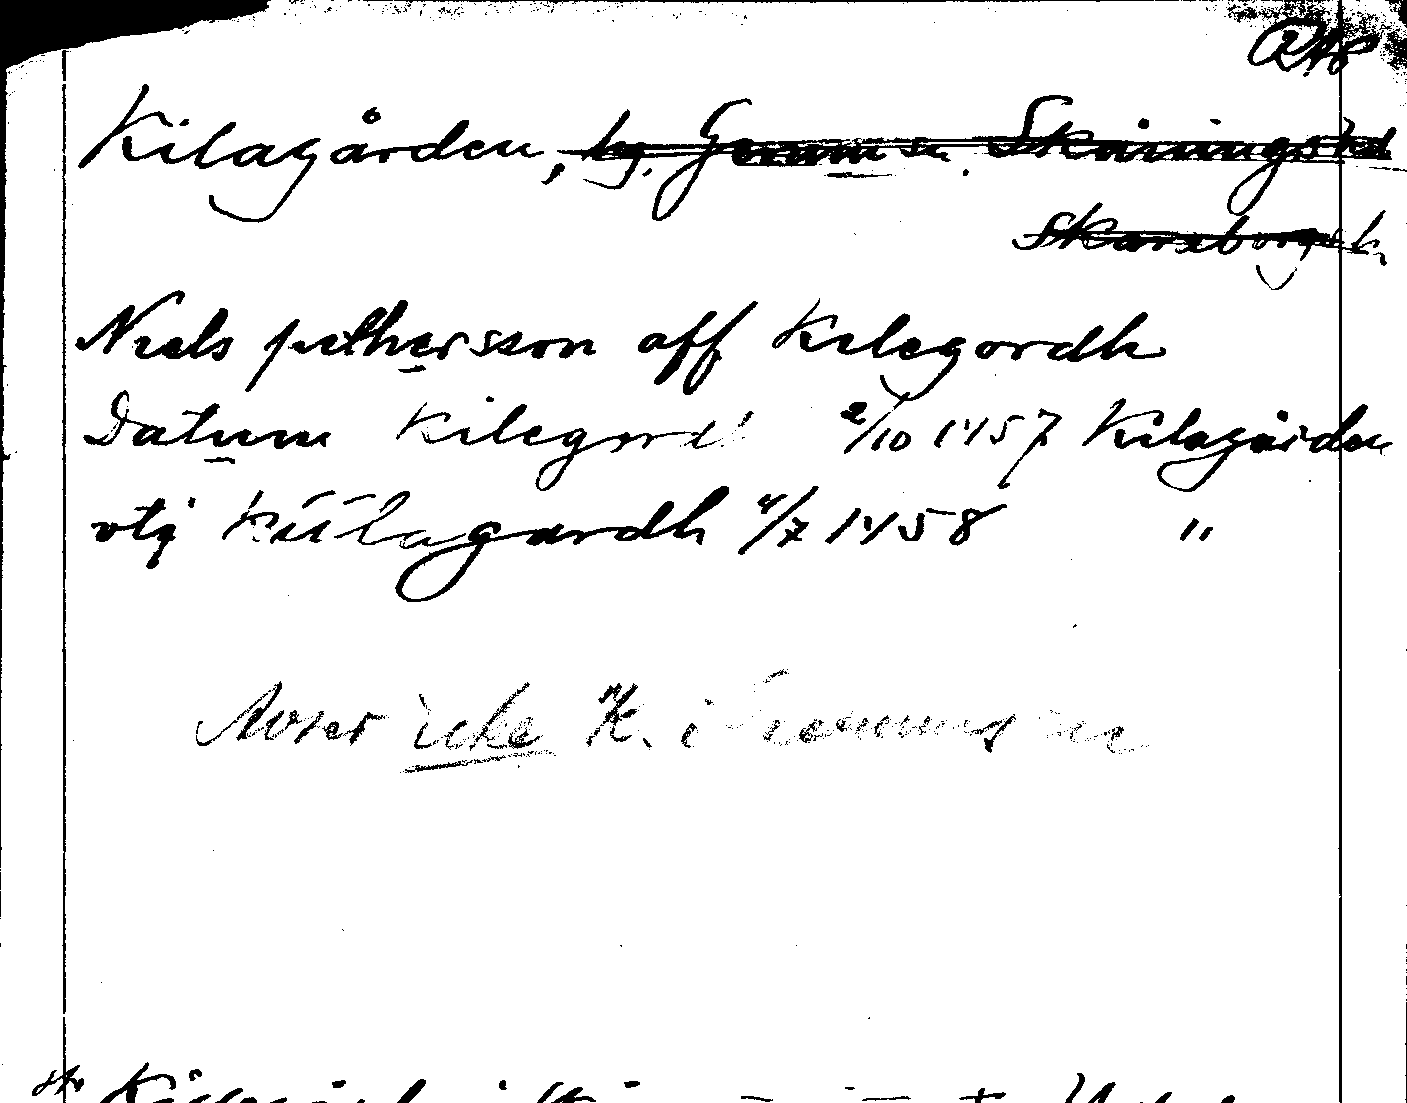 RAP
Kilagården, by. Gerum sn. Skånings hd
Skaraborgs l.
Niels pethersson aff Kilegordh
Datum Kilegord 2/10 1457 Kilagården
vtj Kiilagardh 4/7 1458 "
Avser icke K. i sn